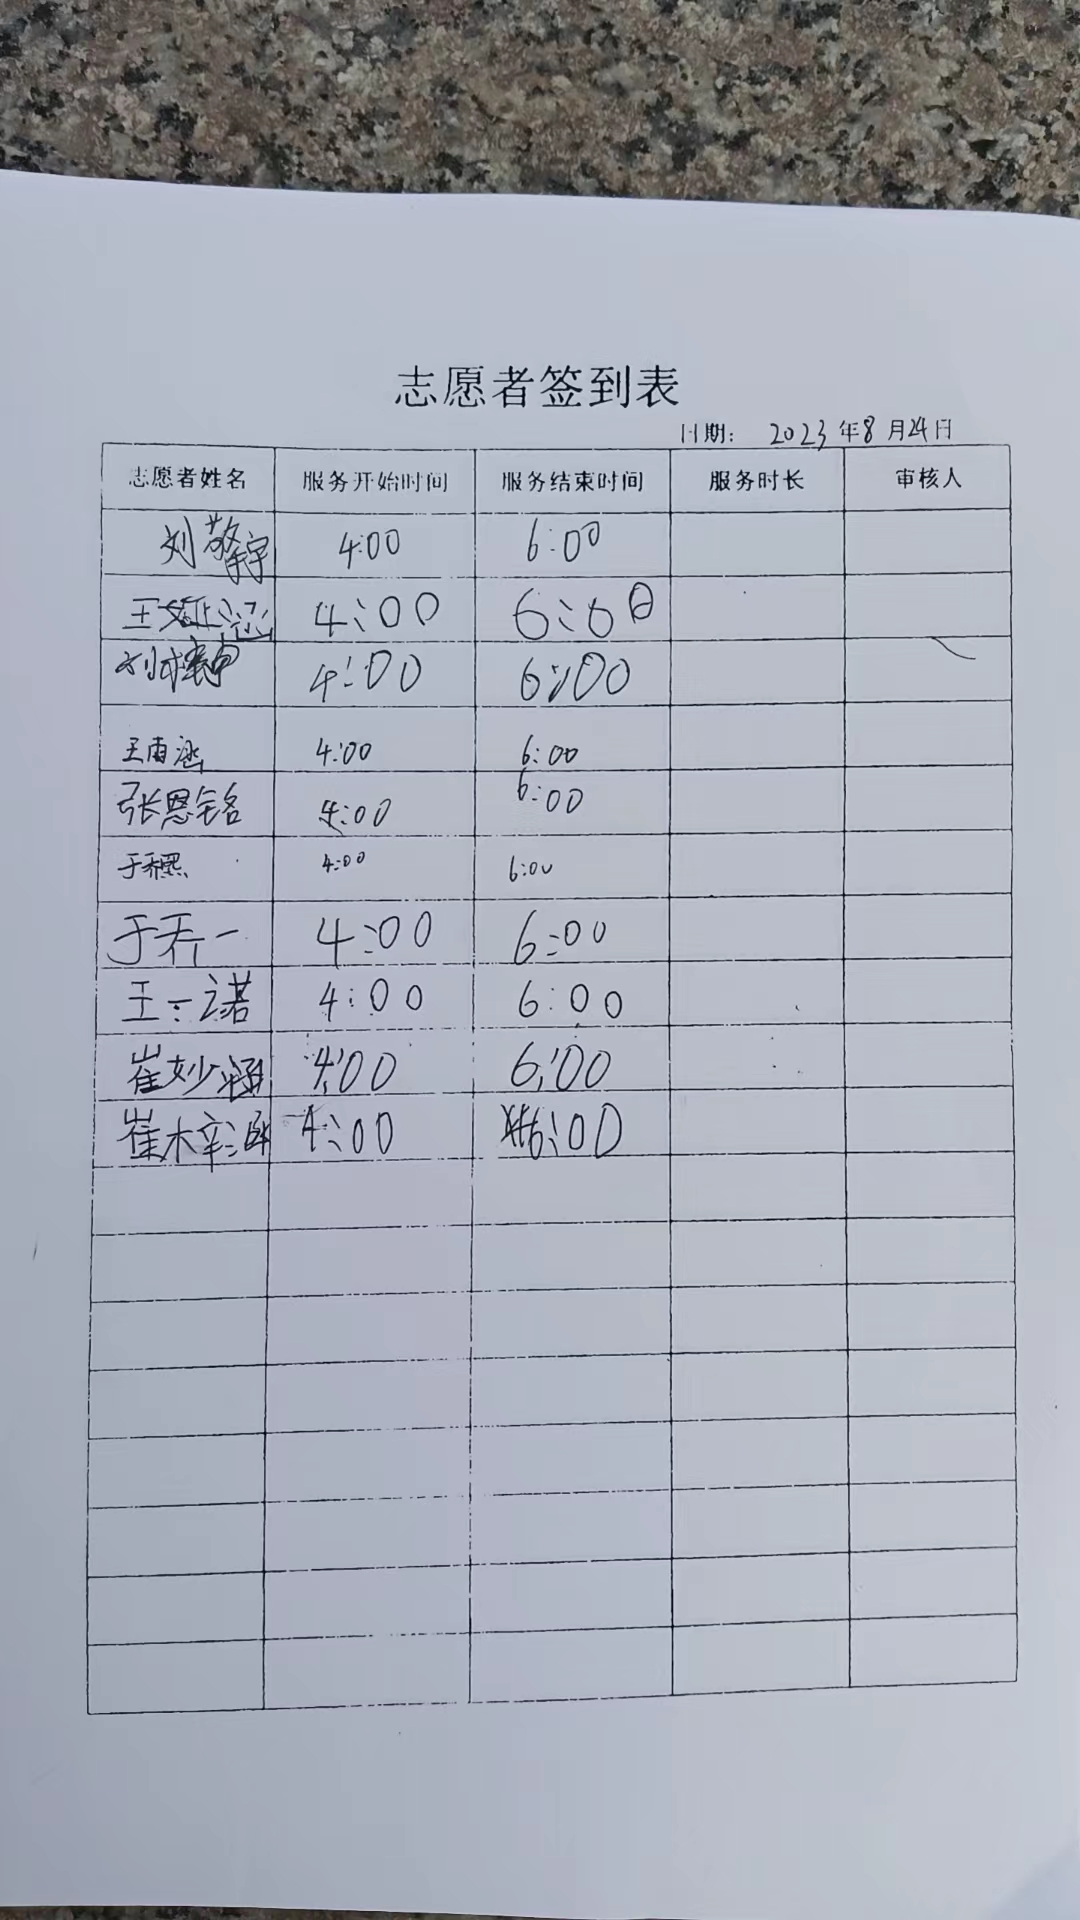 志愿者签到表
日期: 2023年8月24日
志愿者姓名 服务开始时间 服务结束时间 服务时长 审核人
刘擎宇 4:00 6:00
王 4:00 6:00
刘 4:00 6:00
王雨涵 4:00 6:00
张恩铭 4:00 6:00
于乔熙 4:00 6:00
于乔一 4:00 6:00
王一诺 4:00 6:00
崔妙涵 4:00 6:00
崔梓涵 4:00 6:00